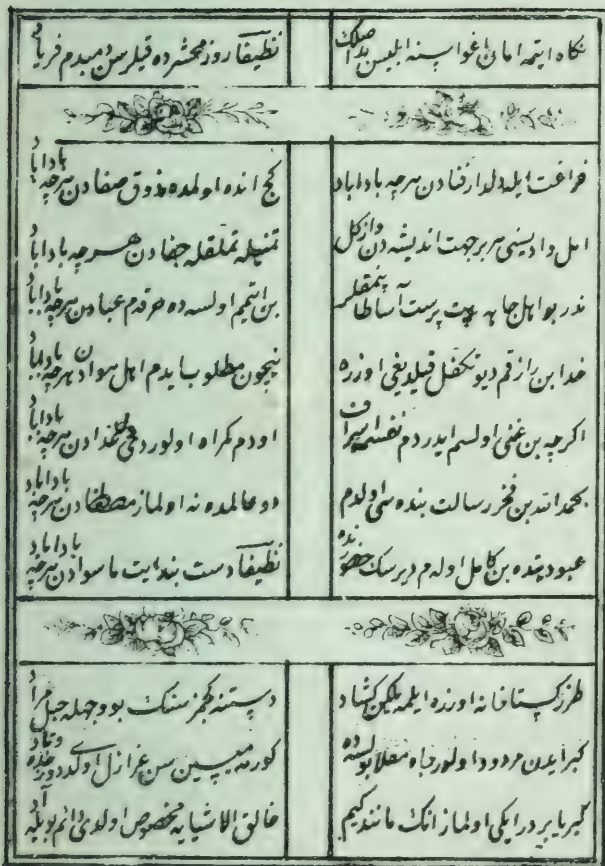 نكاه ايتمه امان اغواسنه ابليس بد اصلك
نظيفا روز محشرده قيلرسن دمبدم فرياد
فراغت ايله دلدار فنادن هرچه باداباد
كچ انده اولمده ذوق صفادن هرچه باداباد
امل واديسنى هر بر جهت انديشه دن وازكل
تمنيله تملقله جفادن هرچه باداباد
ندر بو اهل جاهه بت پرست آسا
بن ايتيم اولسه ده هر قدم عبادن هرچه باداباد
خدا بن رازقم ديو تكفل قيلديغى اوزره
نيچون مطلوب ايدم اهل هوادن هرچه باداباد
اكرچه بن غنى اولسم ايدردم نفسمه اسراف
اودم كمراه اولوردم غذادن هرچه باداباد
بحمد الله بن فخر رسالت بنده سى اولدم
دو عالمده نه اولماز مصطفادن هرچه باداباد
عبوديتده بن كامل اولم ديرسك حضورنده
نظيفا دست بند ايت ماسوادن هرچه باداباد
طرز كستاخانه اوزره ايلمه لبكن كشاد
دستنه كچمز سنك بو وجهله حبل مراد
كبر ايدن مردود اولور جاه معلا بولسه ده
كورمه سن عزازل اولدى
كبريا بردر ايكى اولماز انك مانند كيم
خالق الاشيايه مخصوص اولدى دائم بويله آد